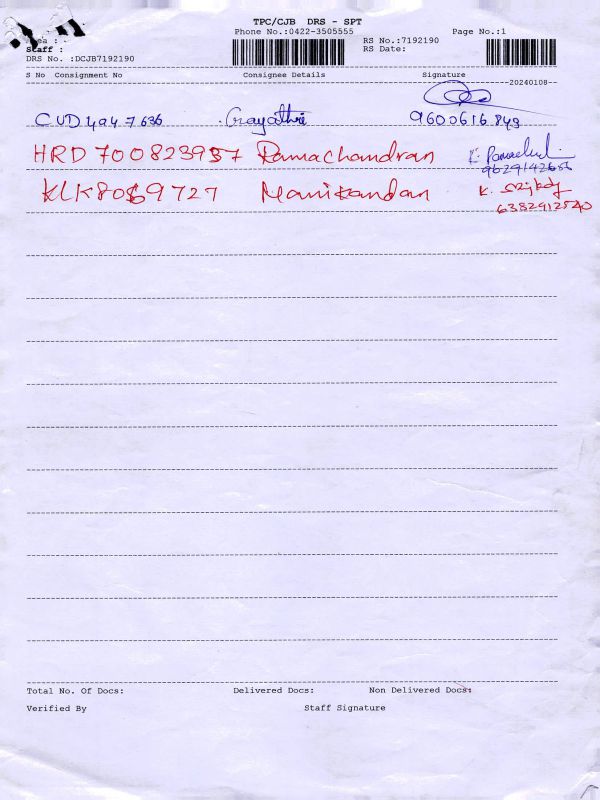 TPC/CJB DRS - SPT
Phone No.:0422-3505555 Page No.:1
Area : RS No.:7192190
Staff : RS Date:
DRS No. :DCJB7192190
S No Consignment No Consignee Details Signature
--20240108--
CUD4947636 Gayathri 9600616849
HRD700823937 Ramachandran
9629142656
KLK8069727 Manikandan K.
6382912540
Total No. Of Docs: Delivered Docs: Non Delivered Docs:
Verified By Staff Signature